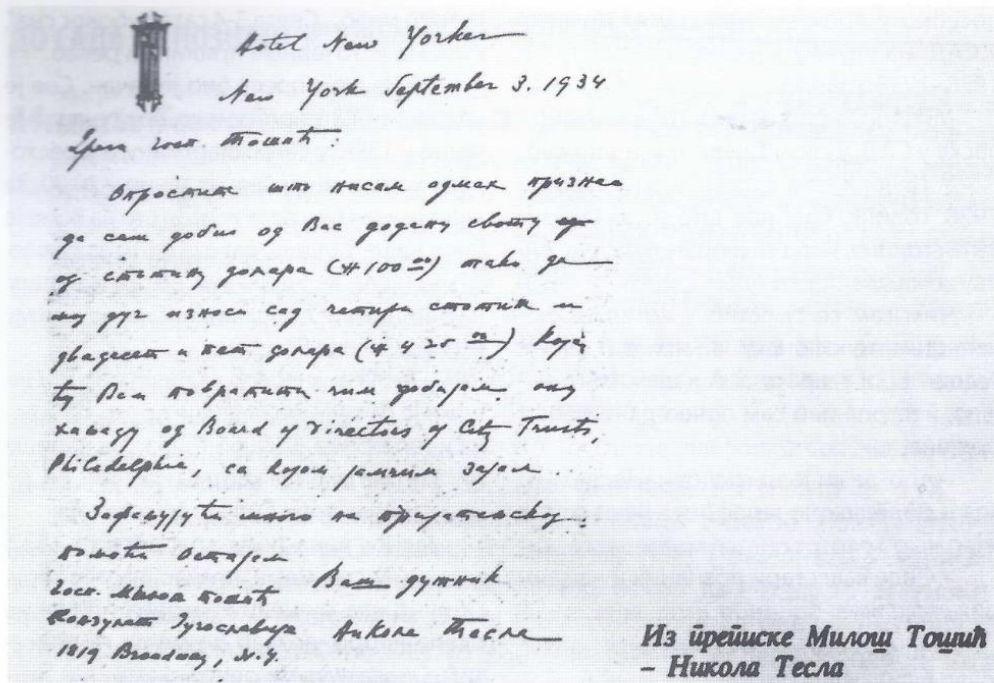 Hotel New Yorker
New York September 3. 1934
Драги Госп. Тошић:
Опростите што нисам одмах признао
да сам добио од Вас додатну своту
од стотину долара ($100 00) тако да
мој дуг износи сад четири стотине и
двадесет и пет долара ($425 00) који
ћу Вам повратити чим добијем ону
награду од Board of Directors of City Trusts,
Philadelphia, са којом јамчим зајам.
Захваљујући много на пријатељској
помоћи остајем
Ваш дужник
Госп. Милош Тошић
Конзулат Југославије Никола Тесла
1819 Broadway, N.Y.
Из преписке Милош Тошић
– Никола Тесла